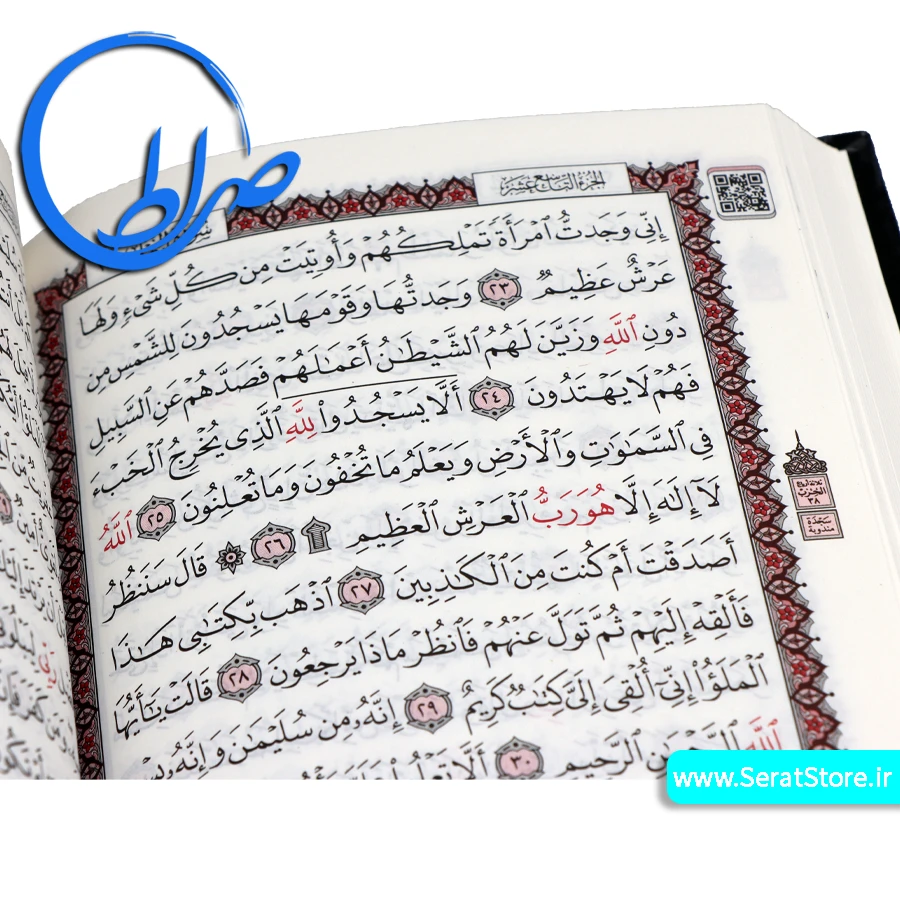 صراط
الجزء التاسع عشر
إِنِّي وَجَدتُّ ٱمْرَأَةً تَمْلِكُهُمْ وَأُوتِيَتْ مِن كُلِّ شَىْءٍ وَلَهَا
عَرْشٌ عَظِيمٌ ٢٣ وَجَدتُّهَا وَقَوْمَهَا يَسْجُدُونَ لِلشَّمْسِ مِن
دُونِ ٱللَّهِ وَزَيَّنَ لَهُمُ ٱلشَّيْطَـٰنُ أَعْمَـٰلَهُمْ فَصَدَّهُمْ عَنِ ٱلسَّبِيلِ
فَهُمْ لَا يَهْتَدُونَ ٢٤ أَلَّا يَسْجُدُوا۟ لِلَّهِ ٱلَّذِى يُخْرِجُ ٱلْخَبْءَ
فِى ٱلسَّمَـٰوَٰتِ وَٱلْأَرْضِ وَيَعْلَمُ مَا تُخْفُونَ وَمَا تُعْلِنُونَ ٢٥ ٱللَّهُ
لَآ إِلَـٰهَ إِلَّا هُوَ رَبُّ ٱلْعَرْشِ ٱلْعَظِيمِ ۩ ٢٦ ۞ قَالَ سَنَنظُرُ
أَصَدَقْتَ أَمْ كُنتَ مِنَ ٱلْكَـٰذِبِينَ ٢٧ ٱذْهَب بِّكِتَـٰبِى هَـٰذَا
فَأَلْقِهْ إِلَيْهِمْ ثُمَّ تَوَلَّ عَنْهُمْ فَٱنظُرْ مَاذَا يَرْجِعُونَ ٢٨ قَالَتْ يَـٰٓأَيُّهَا
ٱلْمَلَؤُا۟ إِنِّىٓ أُلْقِىَ إِلَىَّ كِتَـٰبٌ كَرِيمٌ ٢٩ إِنَّهُۥ مِن سُلَيْمَـٰنَ وَإِنَّهُۥ بِسْمِ
ٱللَّهِ ٱلرَّحْمَـٰنِ ٱلرَّحِيمِ ٣٠ أَلَّا تَعْلُوا۟
ثلاثة أرباع
الحزب
٣٨
سجدة
مندوبة
www.SeratStore.ir